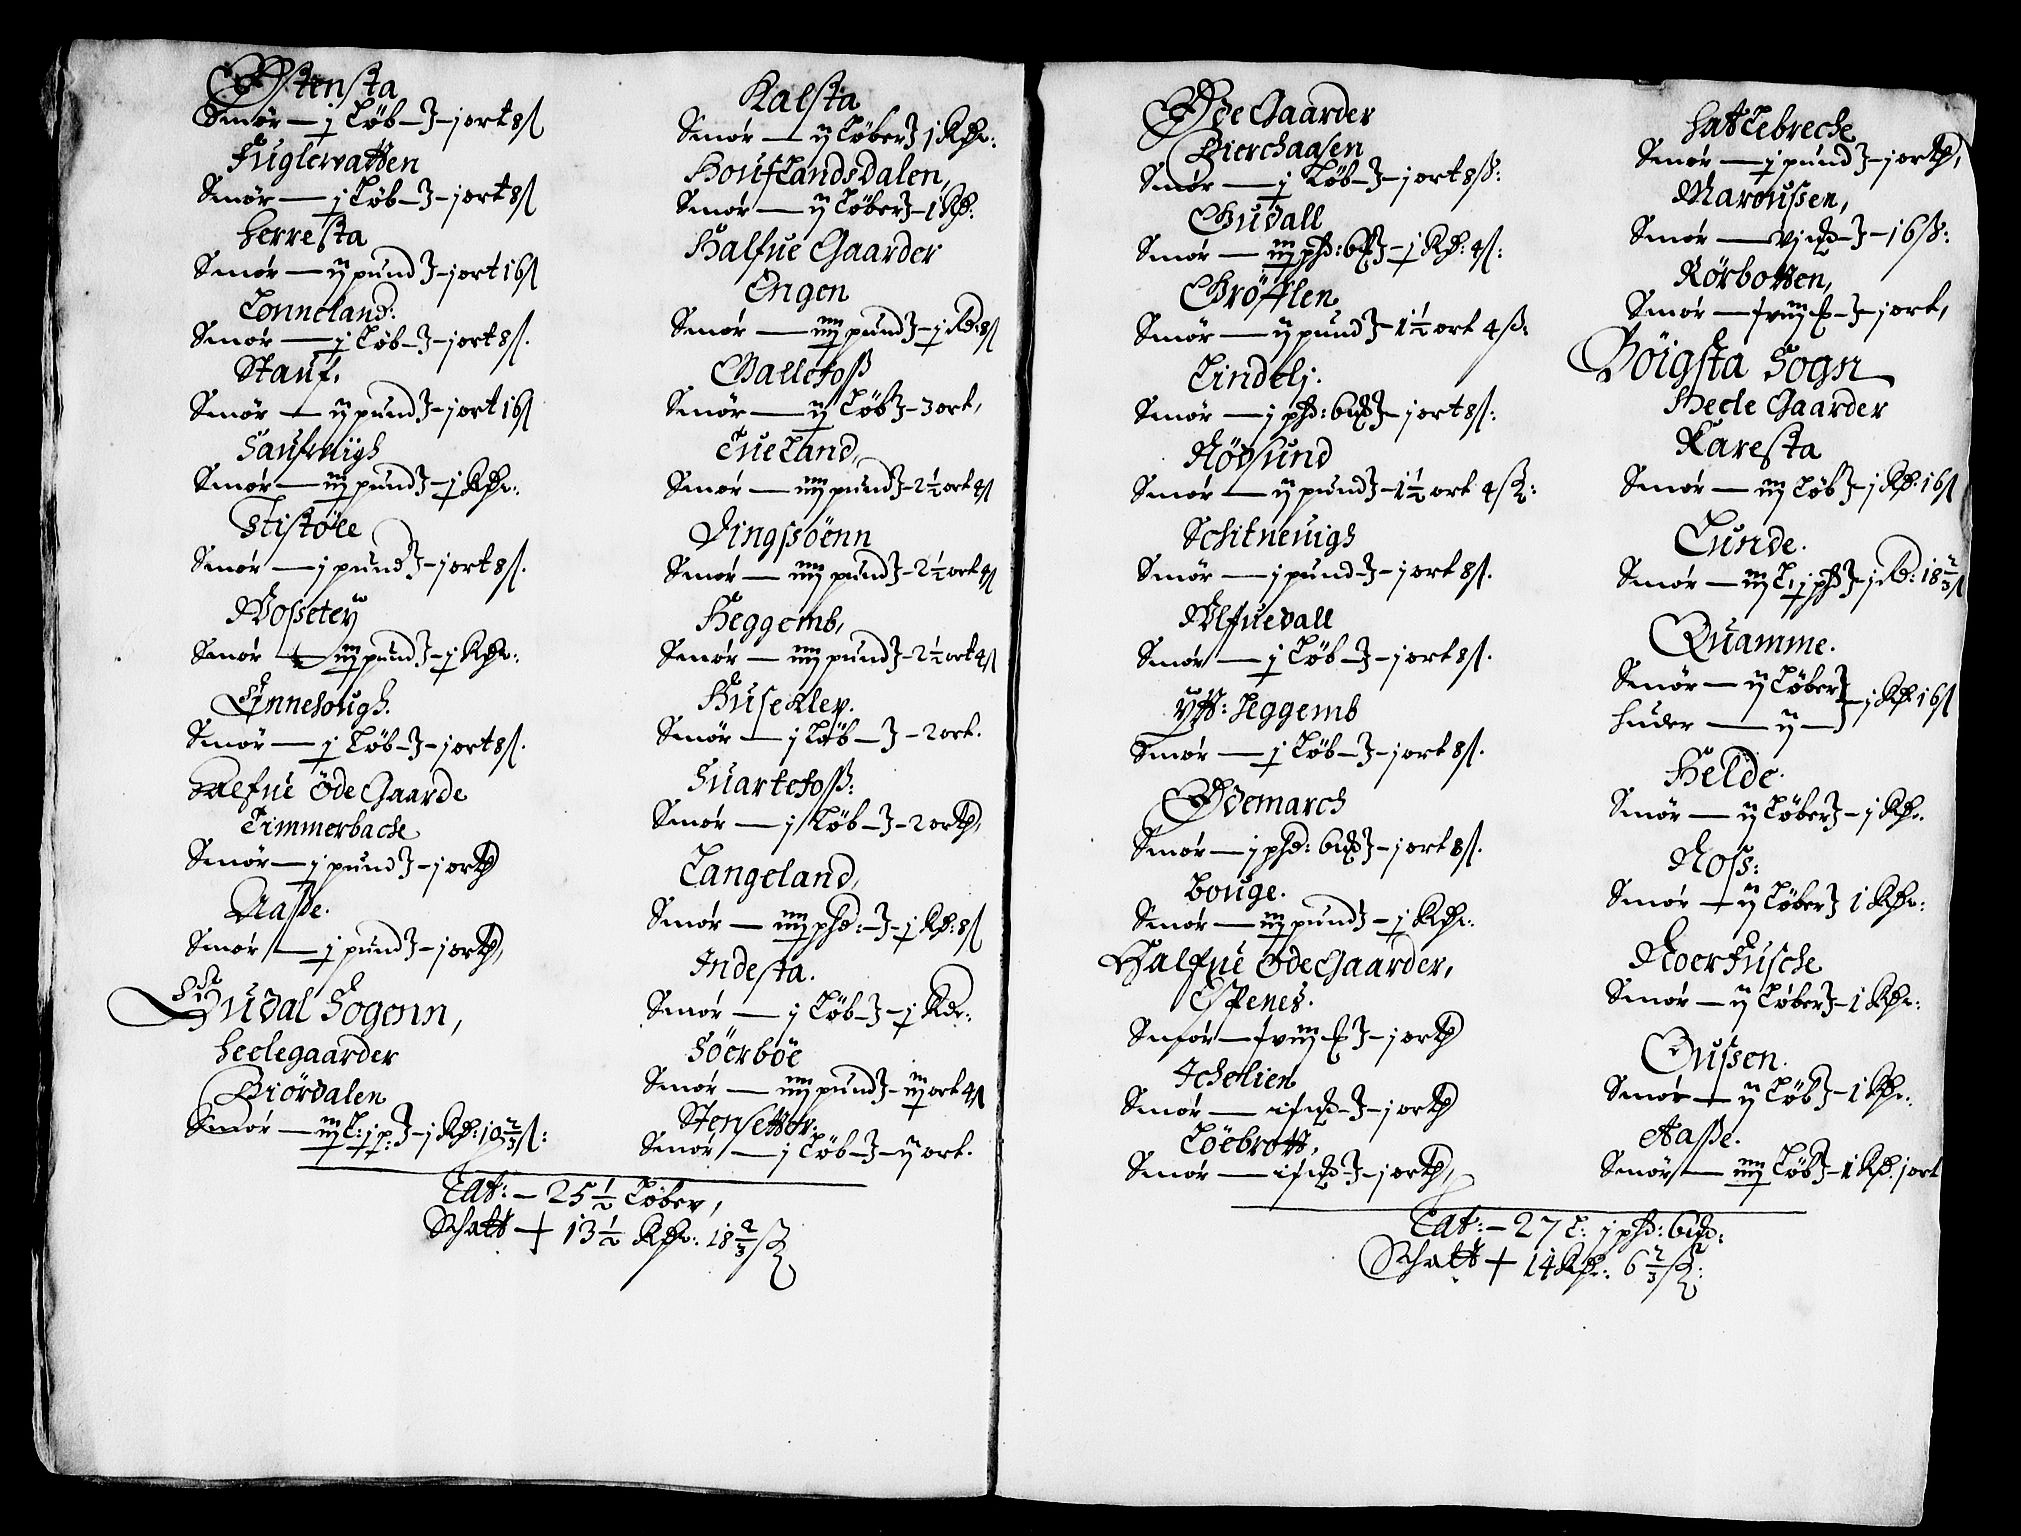 Østensta
Smör — j Löb — j ort 8 ſ
Fuglevatten
Smör — j Löb — j ort 8 ſ
Herresta
Smör — ij pund — j ort 16 ſ
Lonneland:
Smör — j Löb — j ort 8 ſ.
Stauf.
Smör — ij pund — j ort 16 ſ
Saufuiigh
Smör — iij pund — j Rdr:
Stistöle
Smör — j pund — j ort 8 ſ.
Wossetey
Smör — iij pund — j Rdr:
Finnehough.
Smör — j Löb — j ort 8 ſ.
Halfue Öde Gaarde
Timmerbache
Smör — j pund — j orth
Aasse.
Smör — j pund — j orth,
Gudal Sogenn,
Heelegaarder
Biördalen
Smör — iij L: j p: — j Rdr: 10 2/3 ſ:
Kalsta
Smör — ij Löber 1 Rdr:
Houflandsdalen,
Smör — ij Löber — 1 Rd:
Halfue Gaarder
Engen
Smör — iiij pund — j Rd: 8 ſ
Galletoss
Smör — ij Löb — 3 ort,
Tueland,
Smör — iiij pund — 2 1/2 ort 4 ſ
Vingssöenn
Smör — iiij pund — 2 1/2 ort 4 ſ
Heggemb,
Smör — iiij pund — 2 1/2 ort 4 ſ
Huseklep.
Smör — j Löb — 2 ort.
Suartefoss:
Smör — j Löb — 2 orth,
Langeland,
Smör — iiij phd: — j Rd: 8 ſ
Indesta.
Smör — j Löb — j Rdr:
Söerböe
Smör — iiij pund — iij ort 4 ſ
Stensetter.
Smör — j Löb — ij ort.
Lat: — 25 1/2 Löber,
Schatt — 13 1/2 Rdr: 18 2/3 ſz
Øde Gaarder
Bierchaasen
Smör — j Löb — j ort 8 ß:
Gudall
Smör — iij phd: 6 — j Rd: 4 ſ:
Gröfflen
Smör — ij pund — 1 1/2 ort 4 ß:
Lindelj.
Smör — j phd: 6 — j ort 8 ſ:
Rödsund
Smör — ij pund — 1 1/2 ort 4 ſz:
Schitneuigh
Smör — j pund — j ort 8 ſ.
Wlfuedall
Smör — j Löb — j ort 8 ſ.
Yt: Heggemb
Smör — j Löb — j ort 8 ſ.
Ødemarch
Smör — j phd: 6 — j ort 8 ſ.
Bouge.
Smör — iij pund — j Rdr:
Halfue Öde Gaarder,
Espenes.
Smör — — j orth
Ichelien
Smör — — j orth
Löebrott,
Smör — — j orth,
Hatlebreche
Smör — j pund — j orth,
Maroussen,
Smör — vj — 16 ß:
Rörbotten,
Smör — — j ort,
Böigsta Sogn
Heele Gaarder
Karesta
Smör — iij Löb — j Rd: 16 ſ
Lunde.
Smör — iij L, j phd — j Rd: 18 2/3 ſ
Quamme.
Smör — ij Löber — j Rd: 16 ſ
Huder — ij
Helde.
Smör — ij Löber — j Rdr.
Noss:
Smör — ij Löber 1 Rdr:
Noerfusche
Smör — ij Löber — 1 Rdr:
Gussen.
Smör — ij Löb — 1 Rdr:
Aasse.
Smör — iiij Löb — 1 Rd: j ort
Lat: — 27 L: j phd: 6
Schatt — 14 Rdr: 6 2/3 ſz: